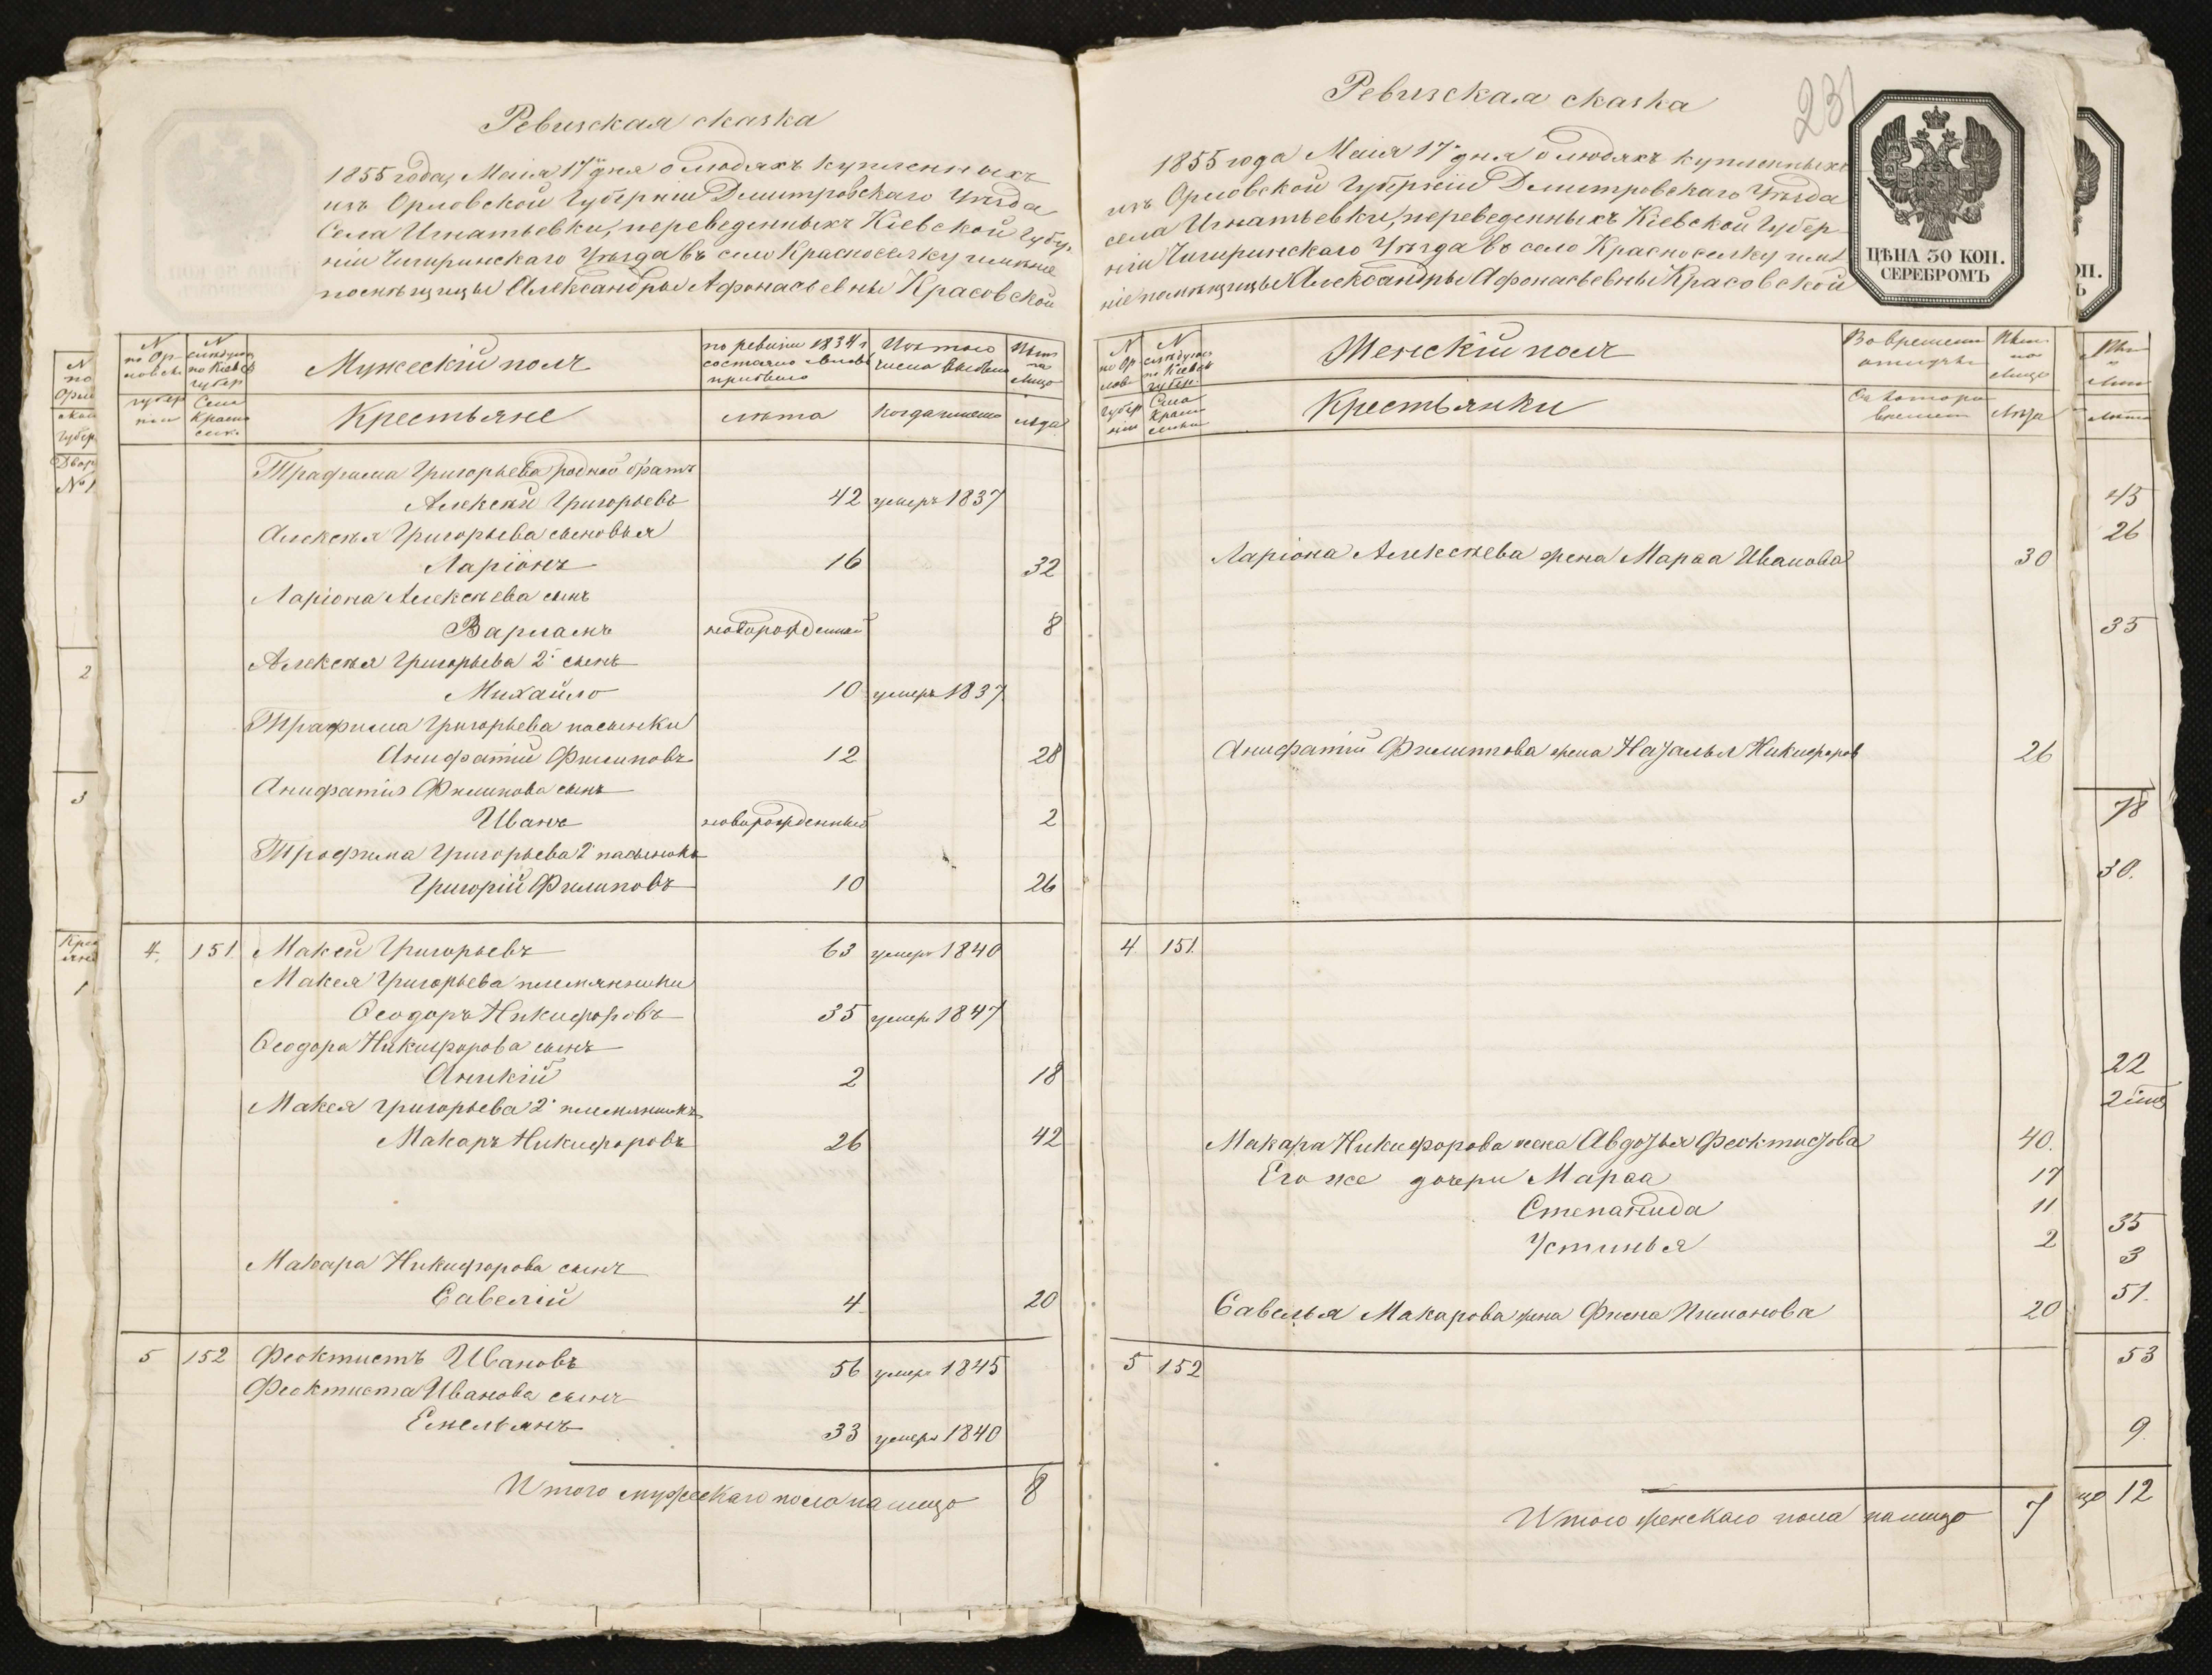 Ревизская сказка
1855 года, Маiя 17 дня о людяхъ купленныхъ
изъ Орловской Губернiи Дмитровскаго Уезда
Села Игнатьевки, переведенныхъ Кiевской Губер-
нiи Чигиринскаго Уезда въ село Красноселку имѣнiе
помѣщицы Александры Афонасьевны Красовской
N
по Ор-
ловск
губер
нiи
N
слѣдующ
по Кiевск
губер
Села
Красно
селк.
Мужескiй полъ
Крестьяне
по ревизiи 1834 г
состояло и вновь
прибыло
лѣта
Изъ того
числа выбыло
когда именно
Нынѣ
на
лицо
лѣта
Трафима Григорьева родной братъ
Алексѣй Григорьевъ 42 умеръ 1837
Алексѣя Григорьева сыновья
Ларiонъ 16 32
Ларiона Алексѣева сынъ
Варламъ новорожденный 8
Алексѣя Григорьева 2й сынъ
Михайло 10 умеръ 1837
Трафима Григорьева пасынки
Анифатiй Филиповъ 12 28
Анифатiя Филипова сынъ
Иванъ новорожденный 2
Трофима Григорьева 2й пасынокъ
Григорiй Филиповъ 10 26
4. 151 Макей Григорьевъ 63 умеръ 1840
Макея Григорьева племянники
Ѳеодоръ Никифоровъ 35 умеръ 1847
Ѳеодора Никифорова сынъ
Аникiй 2 18
Макея Григорьева 2й племянникъ
Макаръ Никифоровъ 26 42
Макара Никифорова сынъ
Савелiй 4 20
5 152 Феоктистъ Ивановъ 56 умеръ 1845
Феоктиста Иванова сынъ
Емельянъ 33 умеръ 1840
Итого мужескаго пола на лицо 8
Ревизская сказка
231
1855 года Маiя 17 дня о людяхъ купленныхъ
изъ Орловской Губернiи Дмитровскаго Уѣзда
села Игнатьевки, переведенныхъ Кiевской Губер-
нiи Чигиринскаго Уѣзда въ село Красноселку имѣ
нiе помѣщицы Александры Афонасьевны Красовской
ЦѢНА 30 КОП.
СЕРЕБРОМЪ
N
по Ор
лов
губер
нiи
N
слѣдующ
по Кiевск
губер.
Села
Красно
селки
Женскiй полъ
Крестьянки
Во временной
отлучкѣ
Съ котораго
времени
Нынѣ
на
лицо
Лѣта
Ларiона Алексѣева жена Марѳа Иванова 30
Анифатiй Филиппова жена Наталья Никифоров 26
4 151.
Макара Никифорова жена Авдотья Феоктистова 40.
Его же дочери Марѳа 17
Степанида 11
Устинья 2
Савелья Макарова жена Фиена Пимонова 20
5 152
Итого женскаго пола на лицо 7
N
по
Двор
№ 1
2
3
1
ОП.
Ъ
45
26
35
78
30.
22
35
3
51.
53
9
12